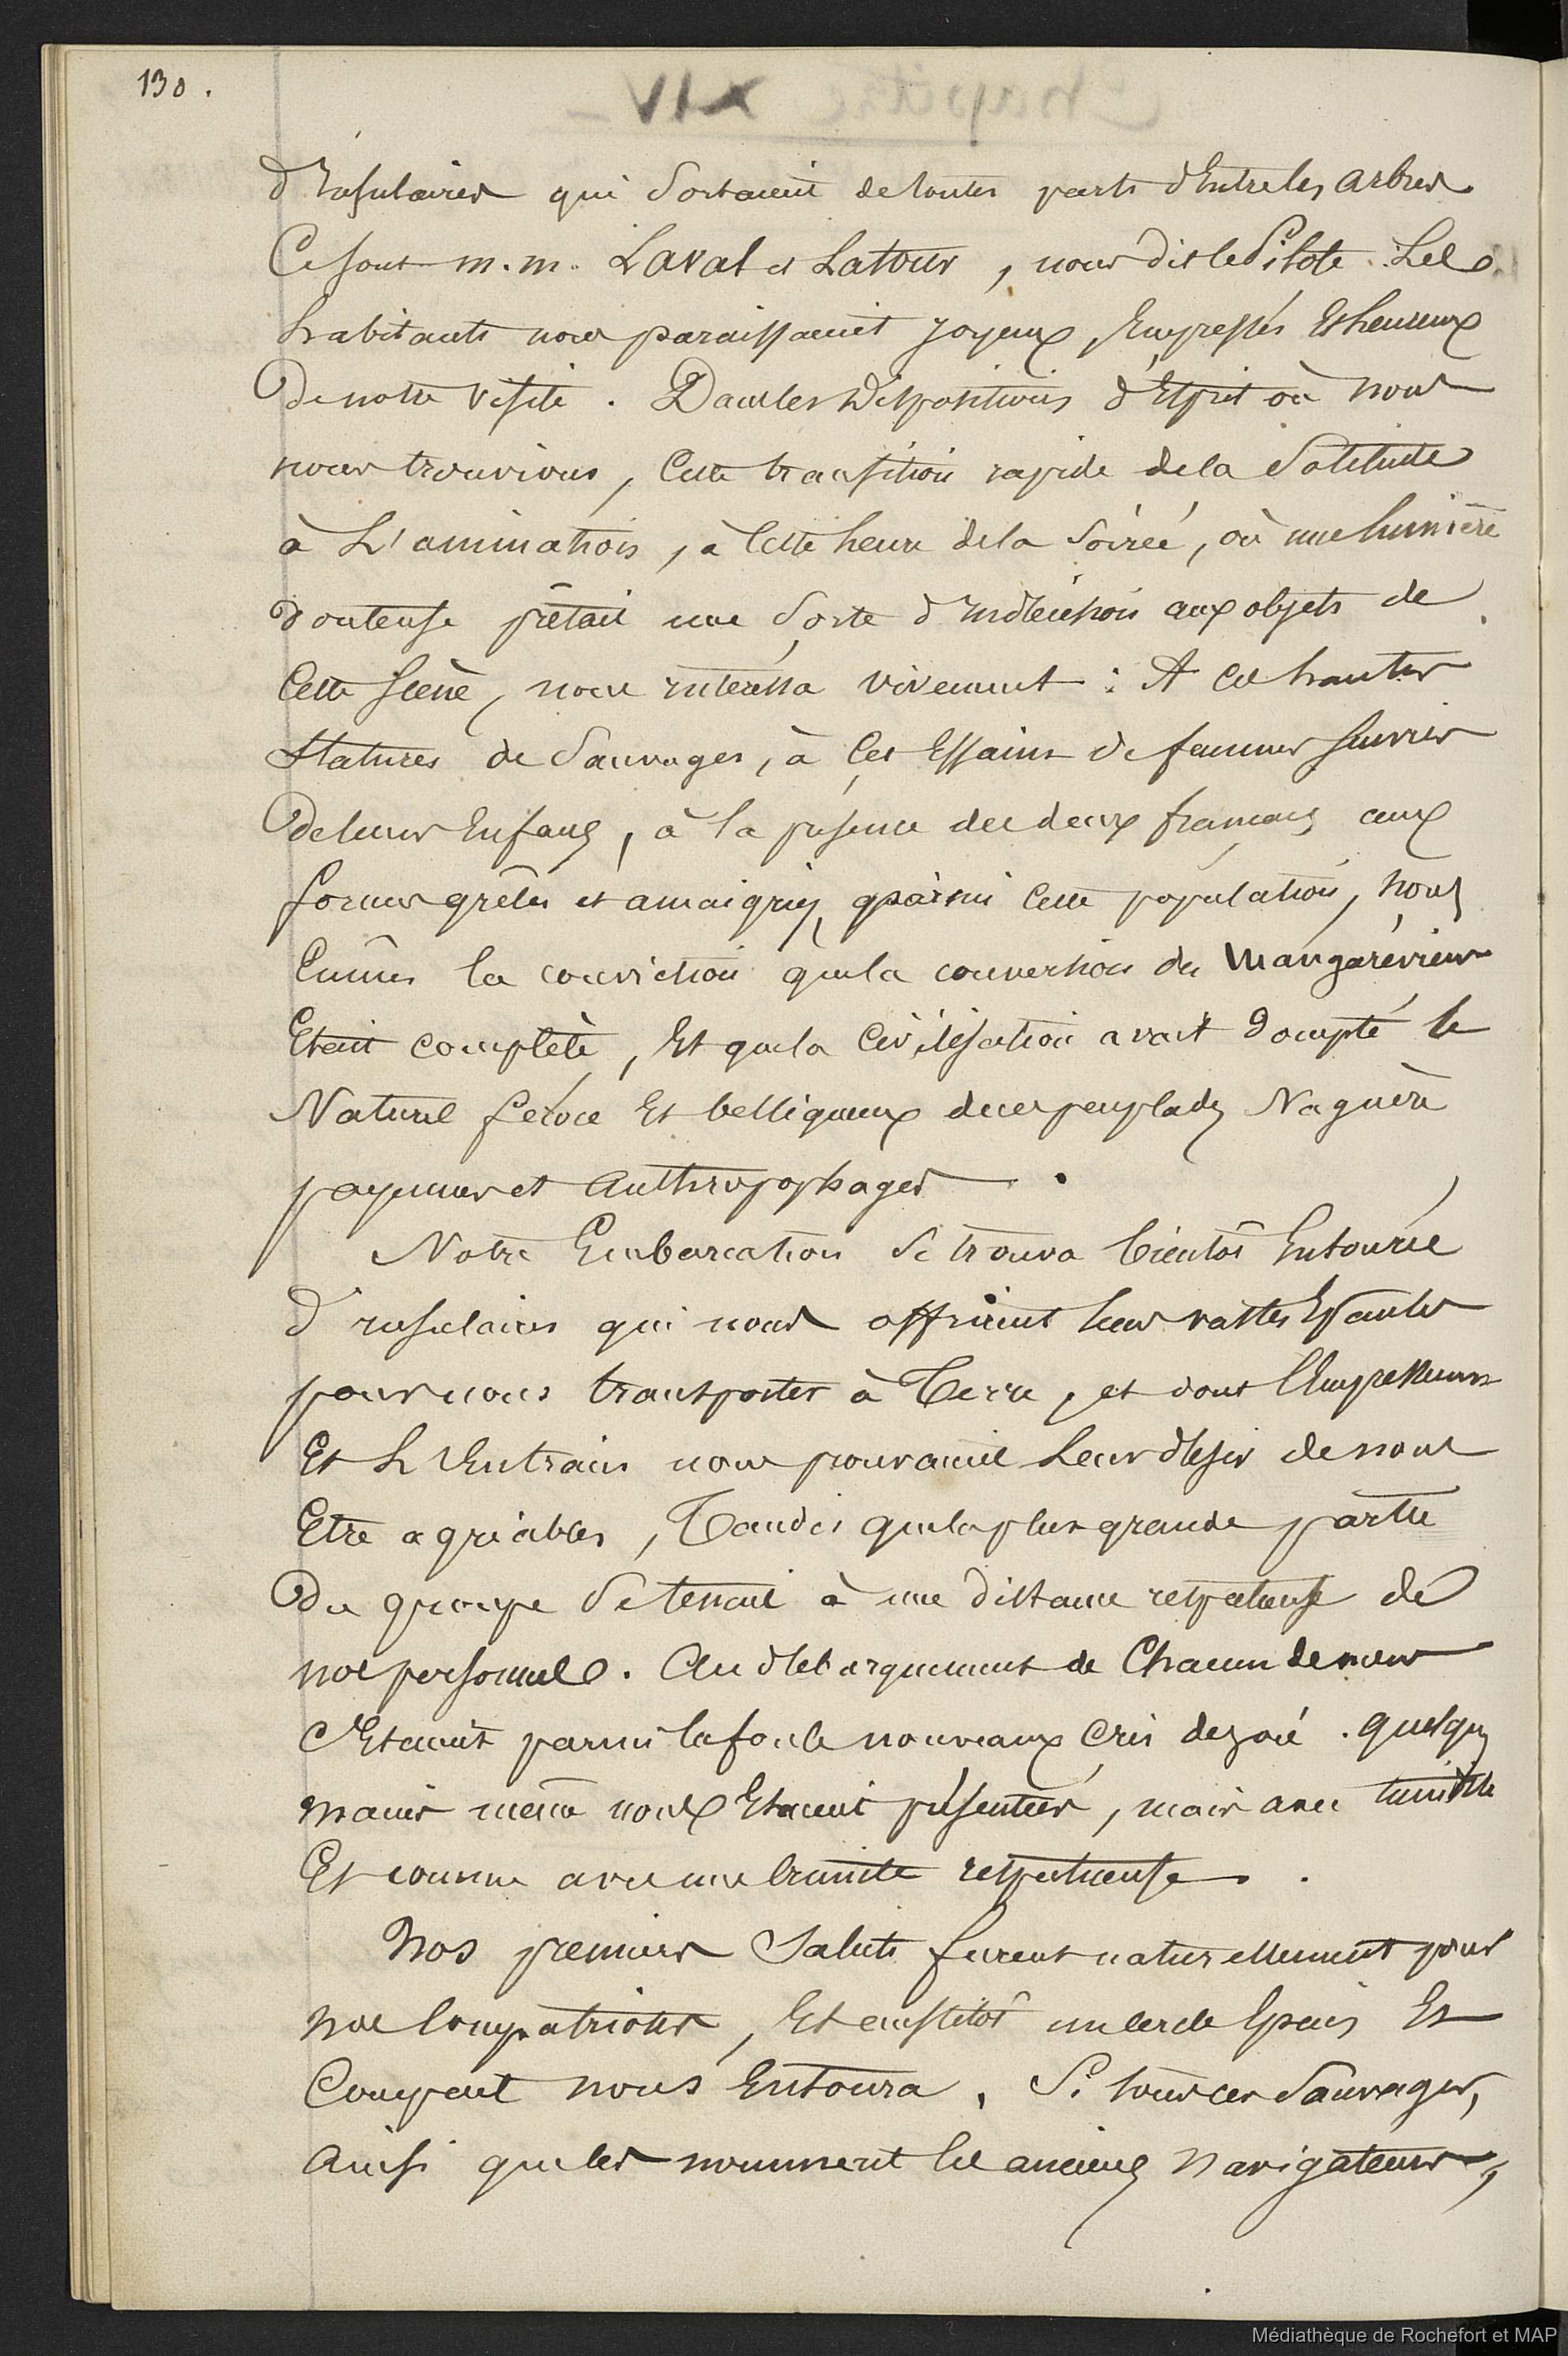 130.
d'insulaires qui sortaient de toutes parts d'entre les arbres
Ce sont m.m. Laval et Latour, nous dit le Pilote. Les
habitants nous paraissaient joyeux, Empressés Et heureux
De notre visite. Dans les Dispositions d'Esprit où nous
nous trouvions, Cette transition rapide de la Solitude
à L'animation, à Cette heure de la Soirée, où une lumière
douteuse prêtait une Sorte d'indécision aux objets de
Cette Scène, nous intéressa vivement : A ces hautes
Statures de Sauvages, à Ces Essaims de femmes suivies
De leurs Enfans, à la présence de deux français aux
formes grêles et amaigries, parmi Cette population, nous
Eumes la conviction que la conversion des Mangaréviens
Etait complète, Et que la Civilisation avait dompté le
Naturel féroce Et belliqueux de ces peuplades Naguère
payennes et Anthropophages.
Notre Embarcation Se trouva bientôt Entourée
d'insulaires qui nous offrirent leurs vastes Epaules
pour nous transporter à Terre, et dont l'Empressement
Et L'Entrain nous prouvaient Leur désir de nous
Etre agréables, Tandis que la plus grande partie
Du groupe Se tenait à une distance respectueuse de
nos personnes. Au débarquement de Chacun de nous
C'Etaient parmi la foule nouveaux Cris de joie. quelques
mains même nous Etaient présentées, mais avec timidité
Et comme avec une crainte respectueuse.
Nos premiers Saluts furent naturellement pour
nos Compatriotes, Et aussitôt un cercle Epais Et
Compact nous Entoura. Si tous ces Sauvages,
Ainsi que les nomment les anciens Navigateurs,
Médiathèque de Rochefort et MAP